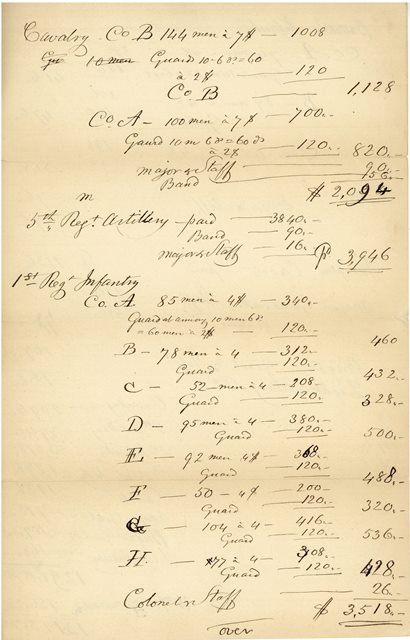 Cavalry Co B 144 men à 7$ — 1008
10 men Guard 10-6 ds=60
à 2$ — 120
Co B — 1,128
Co A — 100 men à 7$ — 700.–
Gaurd 10 m 6 ds=60 ds
à 2$ — 120.– 820.–
major & Staff 90.–
Band 56.–
$ 2,094
m
5th Regt Artillery — paid — 3840.–
Band — 90.–
major & Staff — 16.– $ 3,946
1st Regt Infantry
Co. A 85 men à 4$ — 340.–
Guard at armory, 10 men 6 ds
= 60 men à 2$ — 120.– 460
B — 78 men à 4 — 312.–
Guard 120.– 432.–
C — 52 men à 4 — 208.–
Guard 120.– 328.–
D — 95 men à 4 — 380.–
Guard 120.– 500.–
E — 92 men 4$ — 368.–
Guard 120.– 488.–
F — 50 — 4$ 200.–
Guard 120.– 320.–
G — 104 à 4 — 416.–
Guard — 120.– 536.–
H. — 77 à 4 — 308.–
Guard — 120.– 428.–
Colonel & Staff 26.–
$ 3,518.–
over